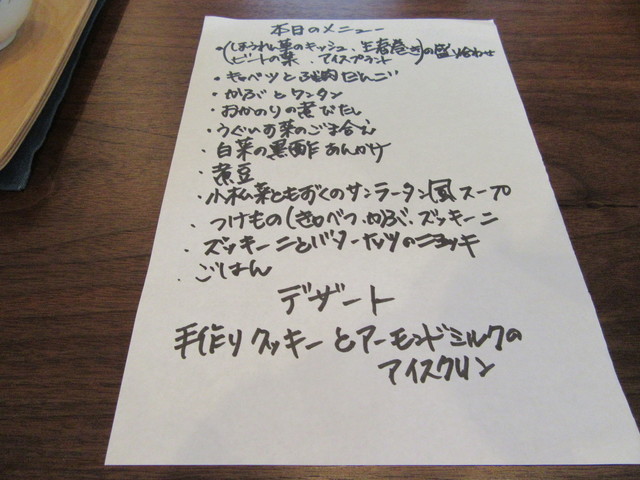 本日のメニュー
・(ほうれん草のキッシュ、生春巻き)の盛り合わせ
(ビートの葉、アイスプラント)
・キャベツと 肉だんご
・かぶとワンタン
・おかのりの煮びたし
・うぐいす菜のごま合え
・白菜の黒酢あんかけ
・煮豆
・小松菜ともずくのサンラータン風スープ
・つけもの(きゃべつ、かぶ、ズッキーニ
・ズッキーニとバターナッツのニョッキ
・ごはん
デザート
手作りクッキーとアーモンドミルクの
アイスクリン